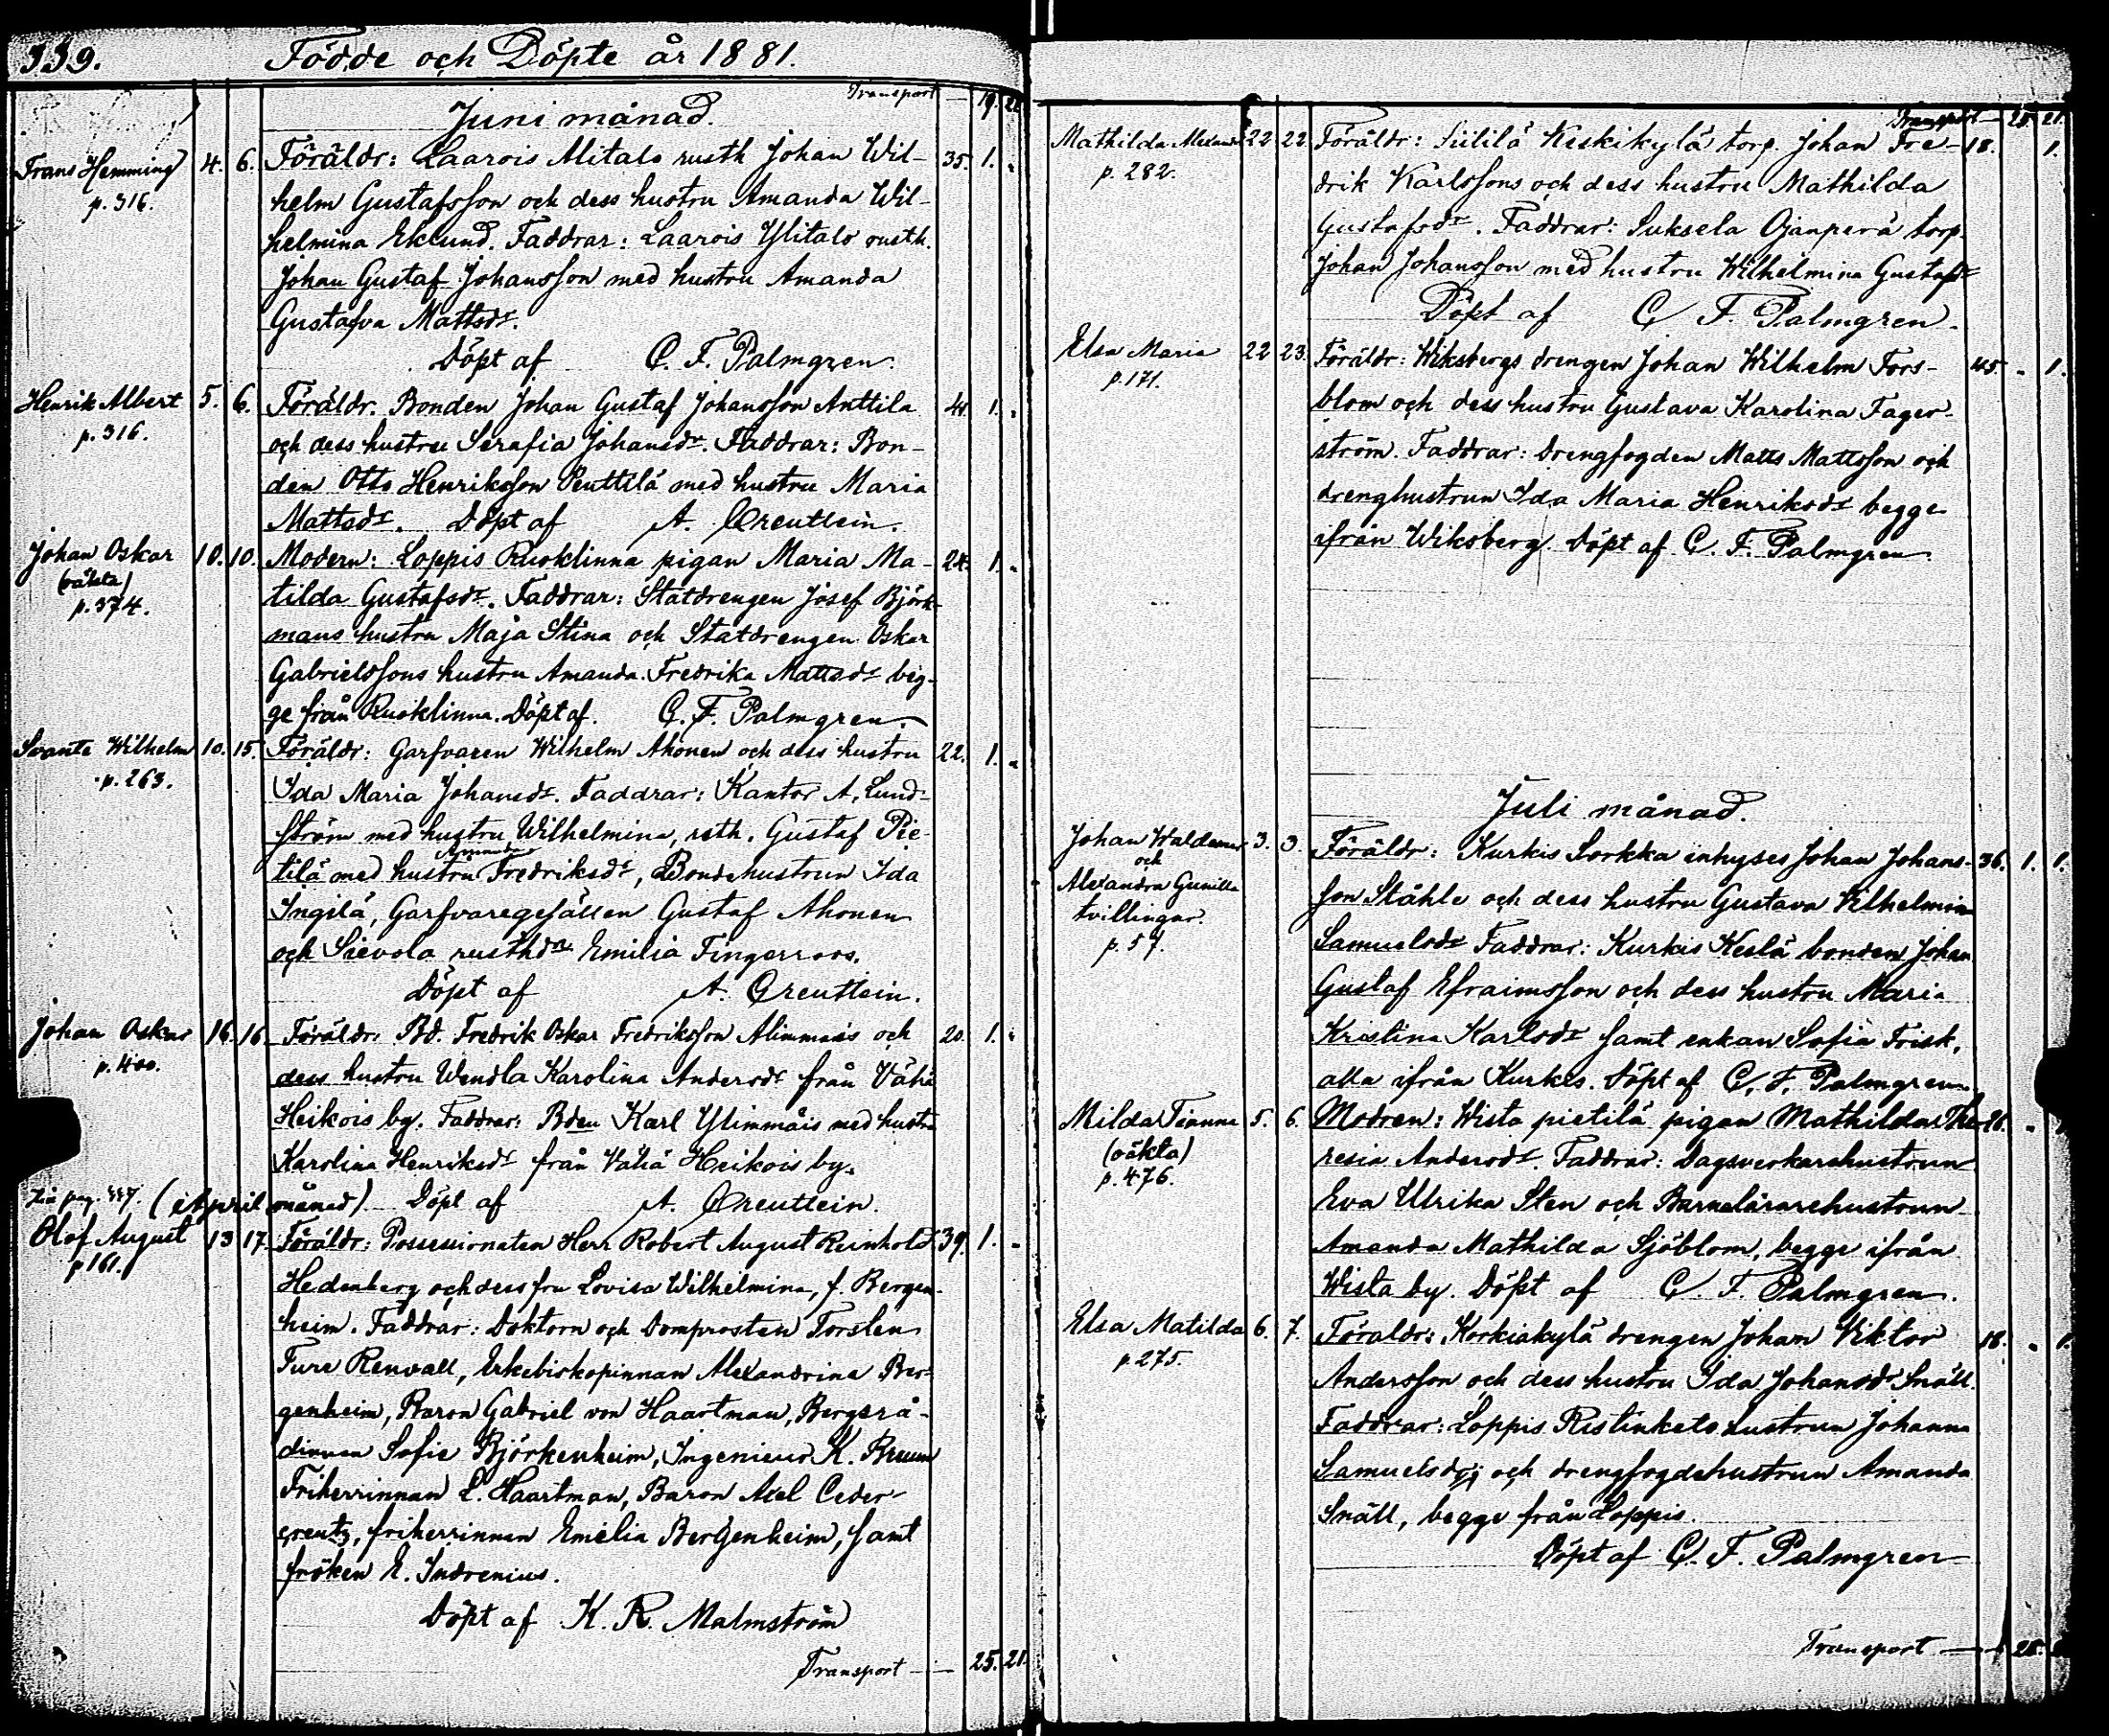 339. Födde och Döpte år 1881.
Transport — 19. 21
Juni månad.
Frans Hemming 4. 6. Föräldr: Laarois Alitalo rusth Johan Wil- 35. 1. "
p. 316. helm Gustafsson och dess hustru Amanda Wil-
helmina Eklund. Faddrar: Laarois Ylitalo rusth.
Johan Gustaf Johansson med hustru Amanda
Gustafva Mattsdr.
Döpt af C. F. Palmgren.
Henrik Albert 5. 6. Föräldr. Bonden Johan Gustaf Johansson Anttila 1. "
p. 316. och dess hustru Serafia Johansdr. Faddrar: Bon-
den Otto Henriksson Penttilä med hustru Maria
Mattsdr. Döpt af A. Creutlein.
Johan Oskar 10. 10. Modern: Loppis Ruoklinna pigan Maria Ma- 24. 1. "
(oäkta) tilda Gustafsdr. Faddrar: Statdrengen Josef Björk-
p. 374. mans hustru Maja Stina och Statdrengen Oskar
Gabrielssons hustru Amanda Fredrika Mattsdr beg-
ge från Ruoklinna. Döpt af. C. F. Palmgren.
Svante Wilhelm 10. 15. Föräldr: Garfvaren Wilhelm Ahonen och dess hustru 22. 1. "
p. 263. Ida Maria Johansdr. Faddrar: Kantor A. Lund-
ström med hustru Wilhelmina, rsth. Gustaf Pie-
Amanda
tilä med hustru Fredriksdr, Bondehustrun Ida
Ingilä, Garfvaregesällen Gustaf Ahonen
och Sievola rusthdn Emilia Fingerroos.
Döpt af A. Creutlein.
Johan Oskar 16. 16. Föräldr. Bd. Fredrik Oskar Fredriksson Alimmäis och 20. 1. "
p. 400. dess hustru Wendla Karolina Andersdr från Vähä
Heikois by. Faddrar: Bden Karl Ylimmäis med hustru
Karolina Henriksdr från Vähä Heikois by.
(i April månad) Döpt af A. Creutlein.
Olof August 13 17. Föräldr: Possessionaten Herr Robert August Reinhold 39. 1. "
p 161. Hedenberg och dess fru Lovisa Wilhelmina, f. Bergen-
heim. Faddrar: Doktorn och Domprosten Torsten
Ture Renvall, Erkebiskopinnan Alexandrina Ber-
genheim, Baron Gabriel von Haartman, Bergsrå-
dinnan Sofie Björkenheim, Ingenieur K. Bruun
Friherrinnan L. Haartman, Baron Axel Ceder-
creutz, friherrinnan Emelia Bergenheim, samt
fröken E. Indrenius.
Döpt af K. R. Malmström
Transport — 25. 21.
Transport — 25. 21.
Mathilda 22 22. Föräldr: Siililä Keskikylä torp. Johan Fre- 18. 1.
p. 282. drik Karlssons och dess hustru Mathilda
Gustafsdr. Faddrar: Suksela Ojanperä torp.
Johan Johansson med hustru Wilhelmina Gustafsdr
Döpt af C. F. Palmgren.
Elsa Maria 22 23. Föräldr: Wiksbergs drengen Johan Wilhelm Fors- 45. " 1.
p. 171. blom och dess hustru Gustava Karolina Fager-
ström. Faddrar: Drengfogden Matts Mattsson och
drenghustrun Ida Maria Henriksdr begge
ifrån Wiksberg. Döpt af C. F. Palmgren.
Juli månad.
Johan Waldemar 3. 3. Föräldr: Kurkis Sorkka inhyses Johan Johans- 36. 1. 1.
och
Alexandra Gunilla son Ståhle och dess hustru Gustava Vilhelmina
tvillingar. Samuelsdr Faddrar: Kurkis Keslä bonden Johan
p. 57. Gustaf Efraimsson och dess hustru Maria
Kristina Karlsdr samt enkan Sofia Frisk,
alla ifrån Kurkis. Döpt af C. F. Palmgren.
Milda Fianna 5. 6. Modren: Wista pietilä pigan Mathilda The- 26. "
(oäkta) resia Andersdr. Faddrar: Dagsverkarehustrun
p. 476. Eva Ulrika Sten och Barnelärarehustrun
Amanda Mathilda Sjöblom, begge ifrån
Wista by. Döpt af C. F. Palmgren.
Elsa Matilda 6. 7. Föräldr: Korkiakylä drengen Johan Viktor " 1.
p. 275. Andersson och dess hustru Ida Johansdr Snäll.
Faddrar: Loppis Ristinkets hustrun Johanna
Samuelsdr och drengfogdehustrun Amanda
Snäll, begge från Loppis.
Döpt af C. F. Palmgren
Transport —